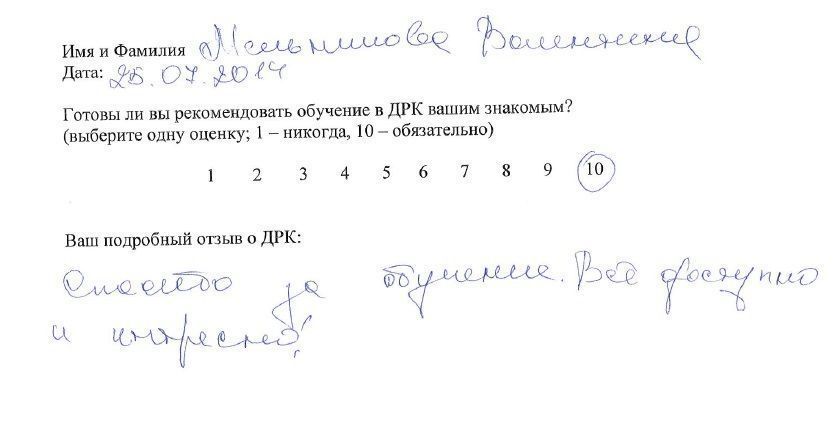 Имя и Фамилия Мельникова Валентина
Дата: 25.07.2014
Готовы ли вы рекомендовать обучение в ДРК вашим знакомым?
(выберите одну оценку; 1 – никогда, 10 – обязательно)
1 2 3 4 5 6 7 8 9 10
Ваш подробный отзыв о ДРК:
Спасибо за обучение. Всё доступно
и интресно!